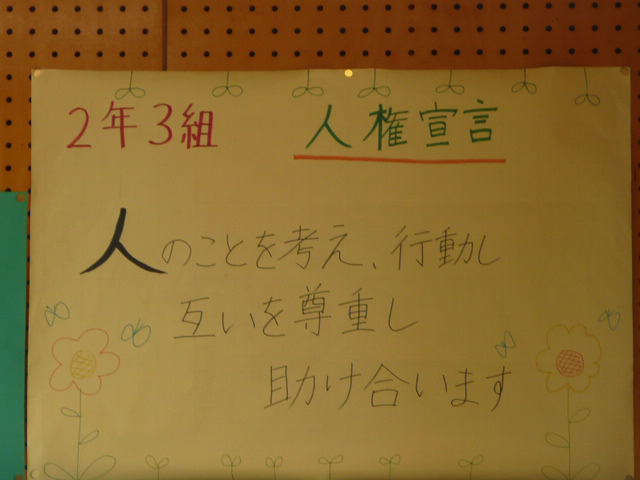 2年3組 人権宣言
人のことを考え、行動し
互いを尊重し
助け合います